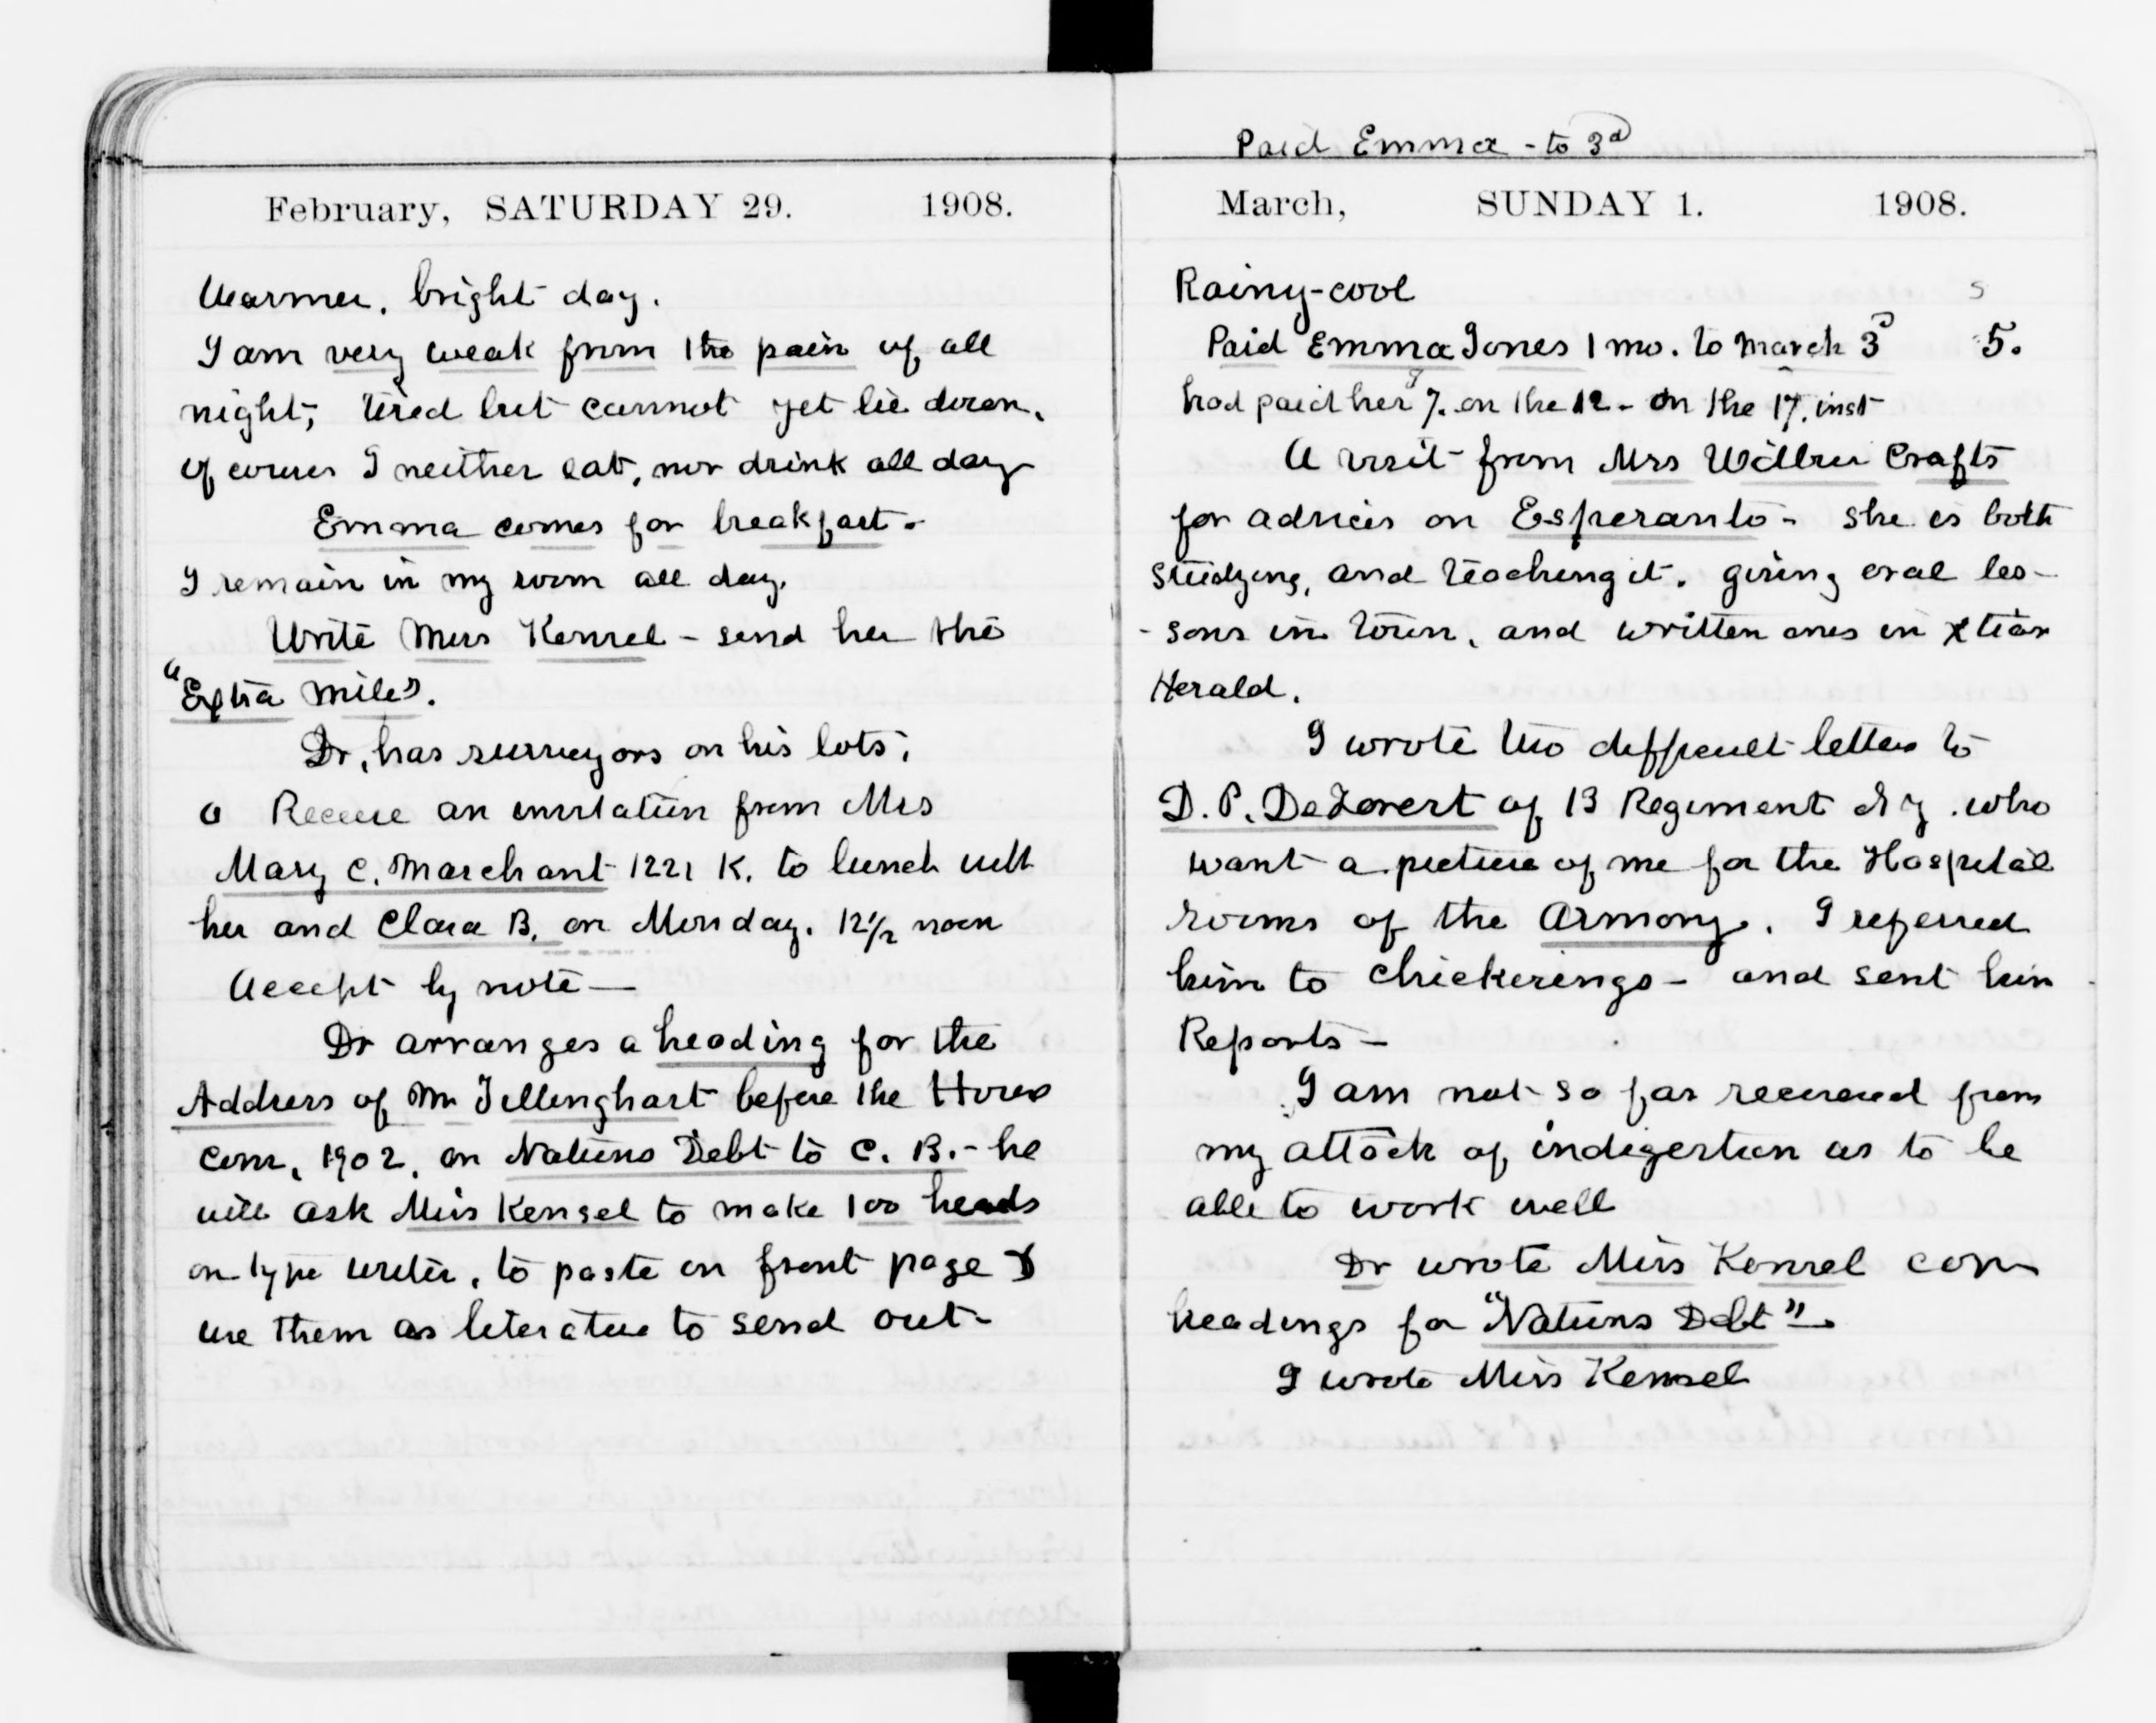 February, SATURDAY 29. 1908.
Warmer, bright day.
I am very weak from the pain of all
night, tired but cannot yet lie down,
of course I neither eat, nor drink all day
Emma comes for breakfast.
I remain in my room all day.
Write Miss Kensel - send her the
"Extra Mile".
Dr. has surveyors on his lots.
Receive an invitation from Mrs
Mary C. Marchant 1221 K. to lunch with
her and Clara B. on Monday. 12 1/2 noon
Accept by note —
Dr arranges a heading for the
Address of Mr Tillinghast before the House
Com, 1902, on Nations Debt to C. B. - he
will ask Miss Kensel to make 100 heads
on type writer, to paste on front page &
use them as literature to send out -
Paid Emma - to 3d
March, SUNDAY 1. 1908.
Rainy-cool
Paid Emma Jones 1 mo. to March 3d 5.
had paid her 7. on the 12 - on the 17. inst
A visit from Mrs Wilbur Crafts
for advice on Esperanto - She is both
studying, and teaching it. giving oral les-
-sons in town, and written ones in Xtian
Herald.
I wrote two difficult letters to
D. P. of 13 Regiment N Y. who
want a picture of me for the Hospital
rooms of the Armory. I referred
him to Chickerings - and sent him
Reports -
I am not so far recovered from
my attack of indigestion as to be
able to work well
Dr wrote Miss Kensel
headings for "Nations Debt".
I wrote Miss Kensel